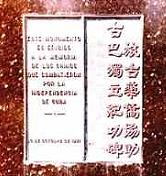 ESTE MONUMENTO
SE ERIGIO
A LA MEMORIA
DE LOS CHINOS
QUE COMBATIERON
POR LA
INDEPENDENCIA
DE CUBA
DE OCTUBRE DE
旅古華僑協助
古巴獨立紀功碑